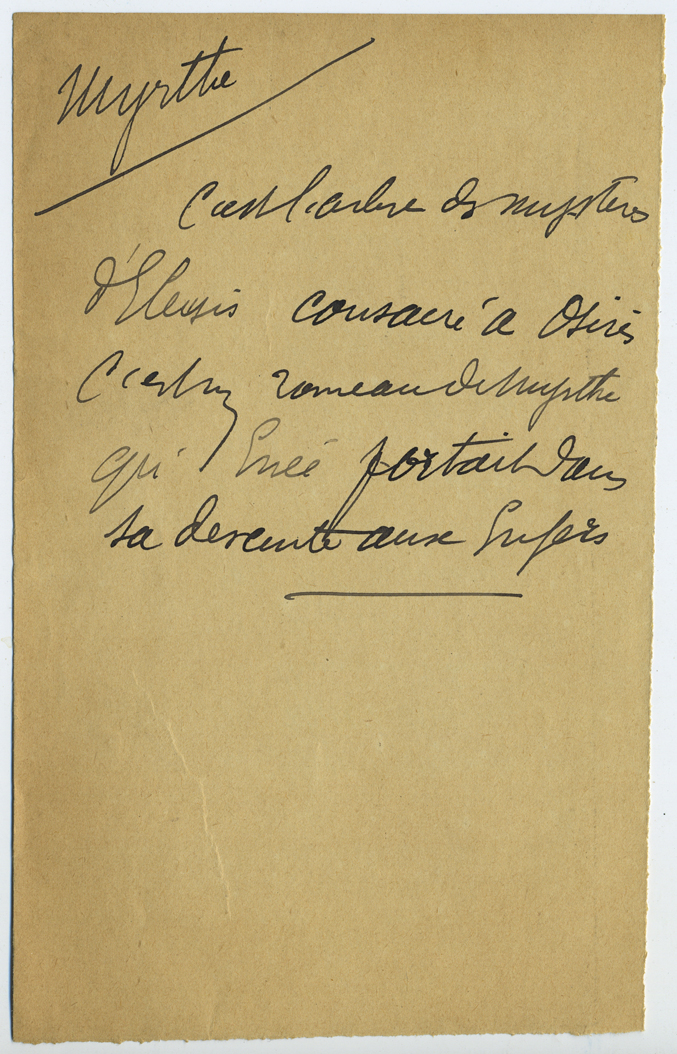 Myrthe
C'est l'arbre des mystères
d'Eleusis consacré à Osiris
C'est un rameau de Myrthe
qu' Enée portait dans
sa descente aux Enfers